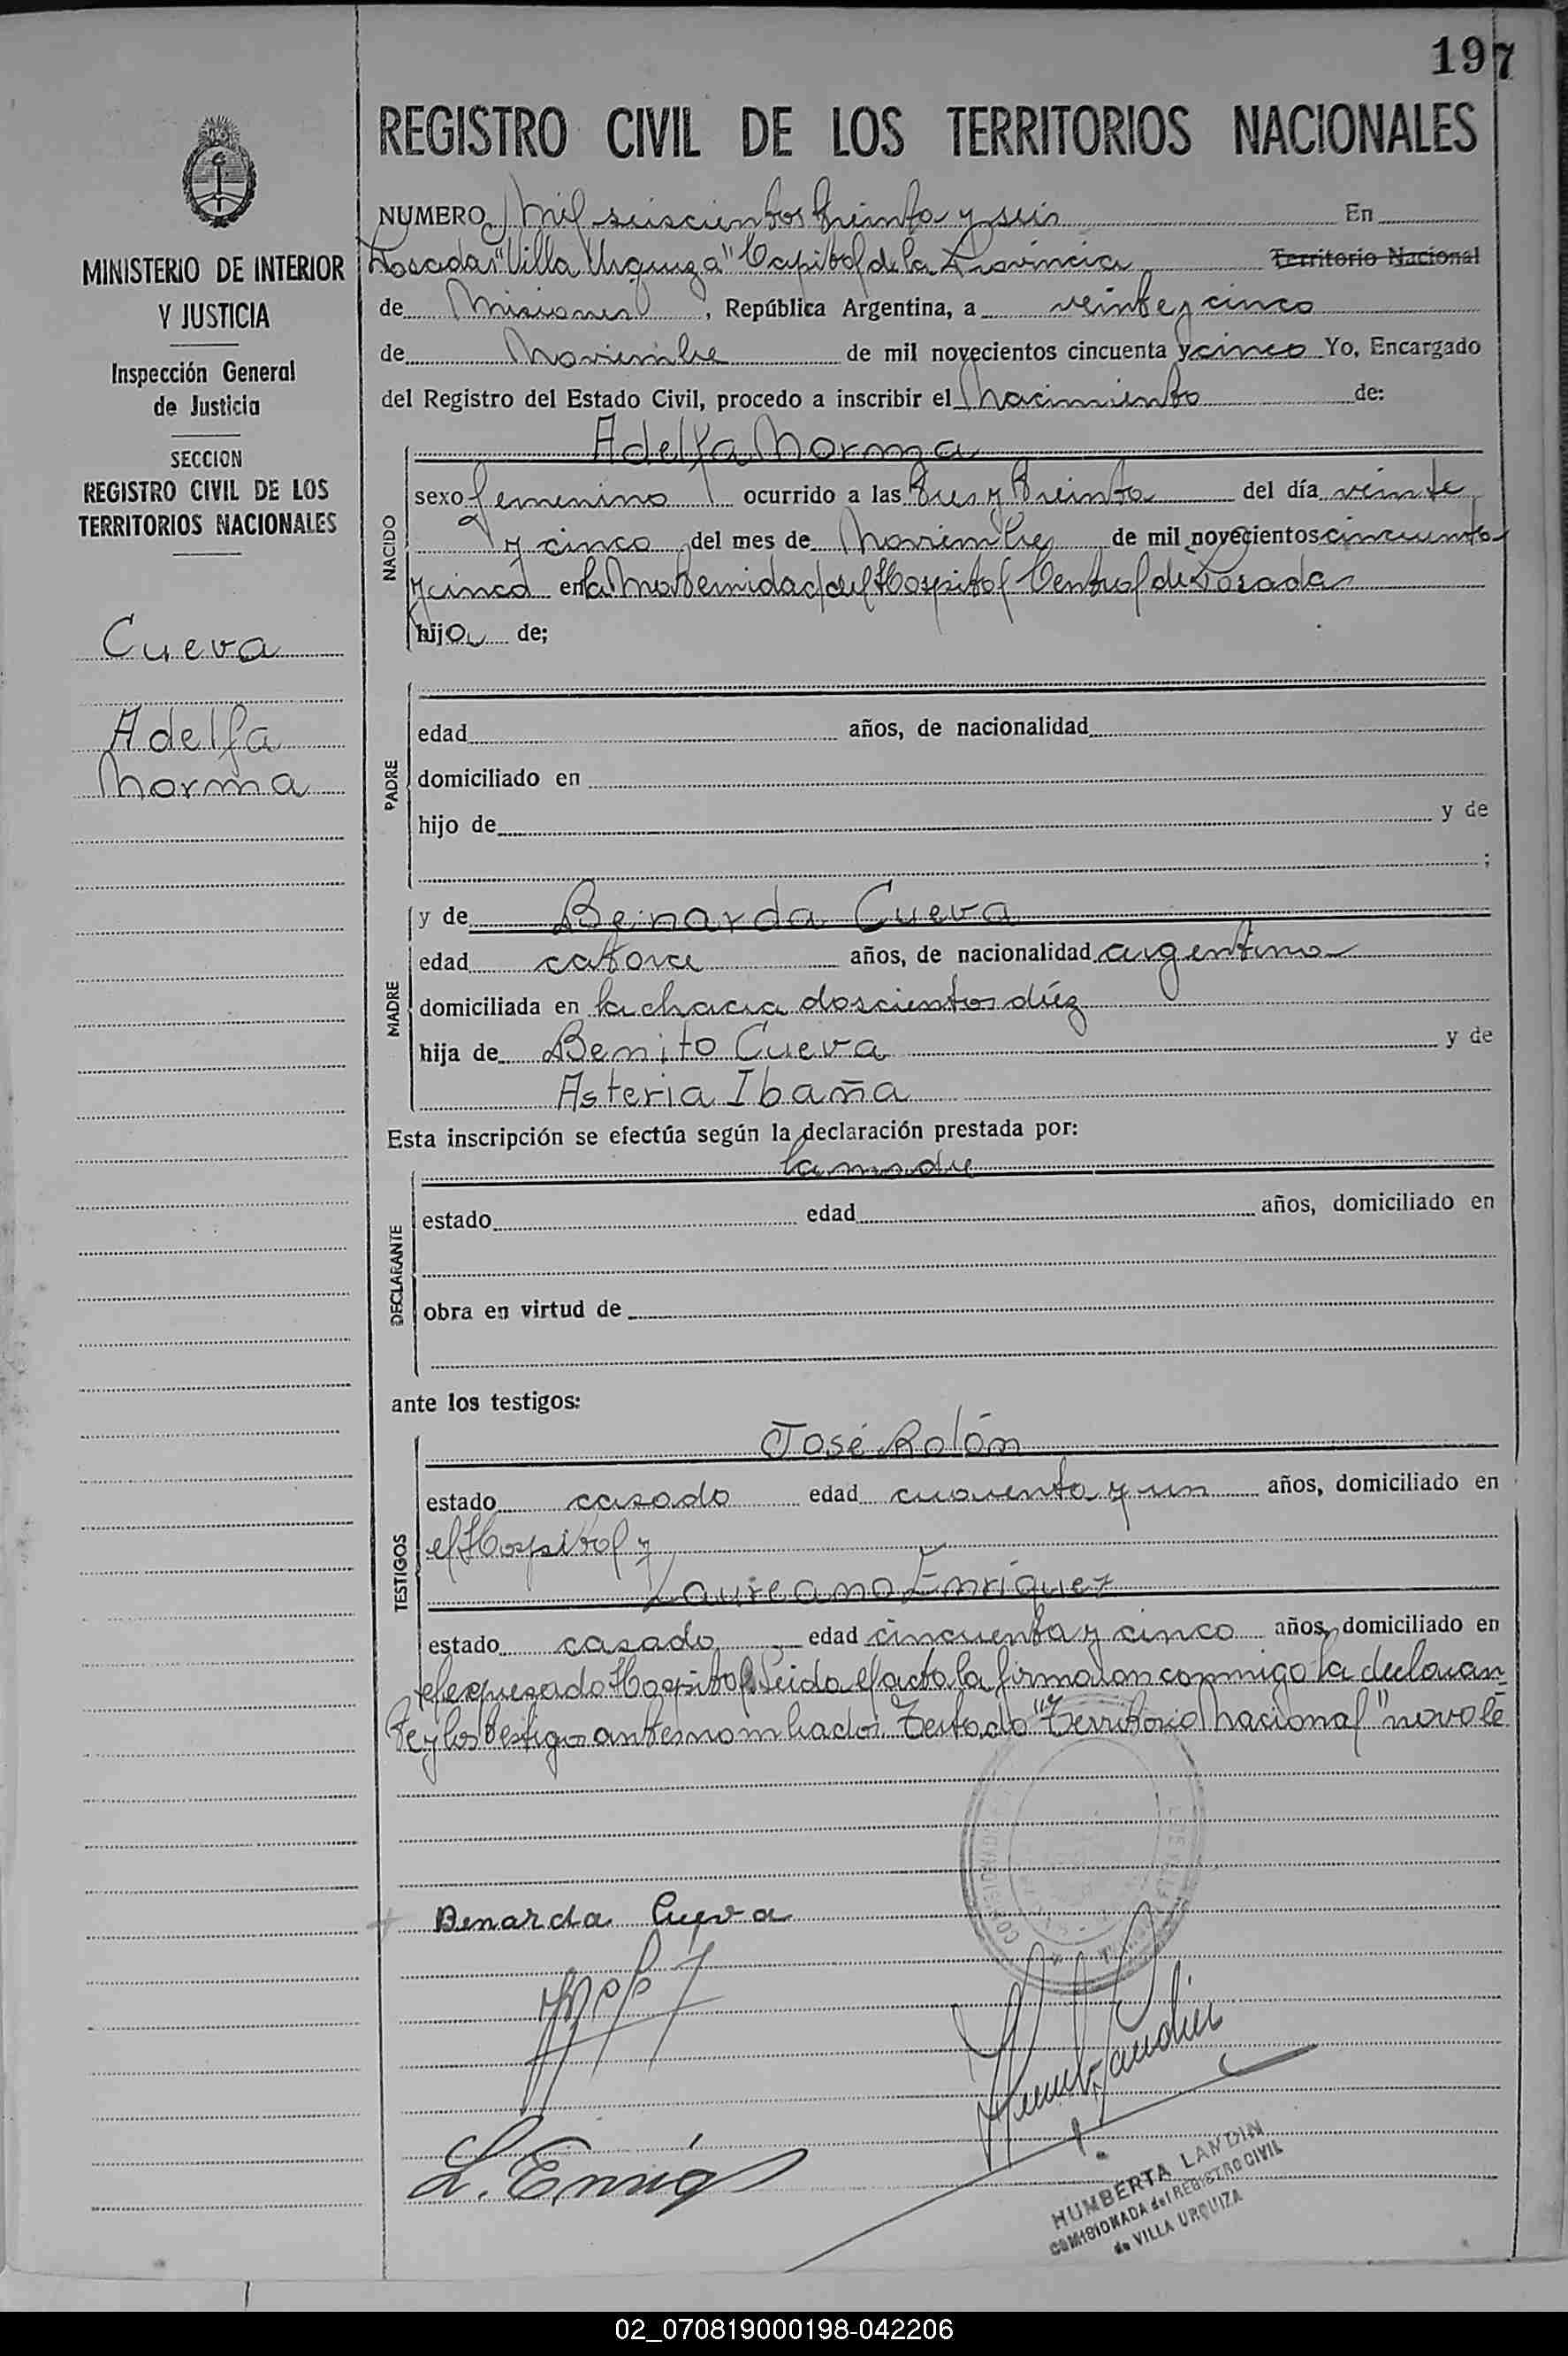 197
REGISTRO CIVIL DE LOS TERRITORIOS NACIONALES
MINISTERIO DE INTERIOR
Y JUSTICIA
Inspección General
de Justicia
SECCION
REGISTRO CIVIL DE LOS
TERRITORIOS NACIONALES
Cueva
Adelfa
Norma
NUMERO Mil seiscientos treinta y seis En
Posadas "Villa Urquiza" Capital de la Provincia Territorio Nacional
de Misiones, República Argentina, a veinte y cinco
de Noviembre de mil novecientos cincuenta y cinco Yo, Encargado
del Registro del Estado Civil, procedo a inscribir el Nacimiento de:
NACIDO
Adelfa Norma
sexo femenino ocurrido a las tres y treinta del día veinte
y cinco del mes de Noviembre de mil novecientos cincuenta
y cinco en la Maternidad del Hospital Central de Posadas
hija de;
PADRE
edad años, de nacionalidad
domiciliado en
hijo de y de
;
MADRE
y de Benarda Cueva
edad catorce años, de nacionalidad argentina
domiciliada en la chacra doscientos diéz
hija de Benito Cueva y de
Asteria Ibaña
Esta inscripción se efectúa según la declaración prestada por:
DECLARANTE
la madre
estado edad años, domiciliado en
obra en virtud de
ante los testigos:
TESTIGOS
José Rolón
estado casado edad cuarenta y un años, domiciliado en
el Hospital y
Laureano Enriquez
estado casado edad cincuenta y cinco años, domiciliado en
el expresado Hospital. Leida el acta la firmaron conmigo la declaran
te y los testigos antes nombrados. Testado "Territorio Nacional" no vale
Benarda Cueva
L. Enriq
HUMBERTA LANDIN
COMISIONADA del REGISTRO CIVIL
de VILLA URQUIZA
02_070819000198-042206